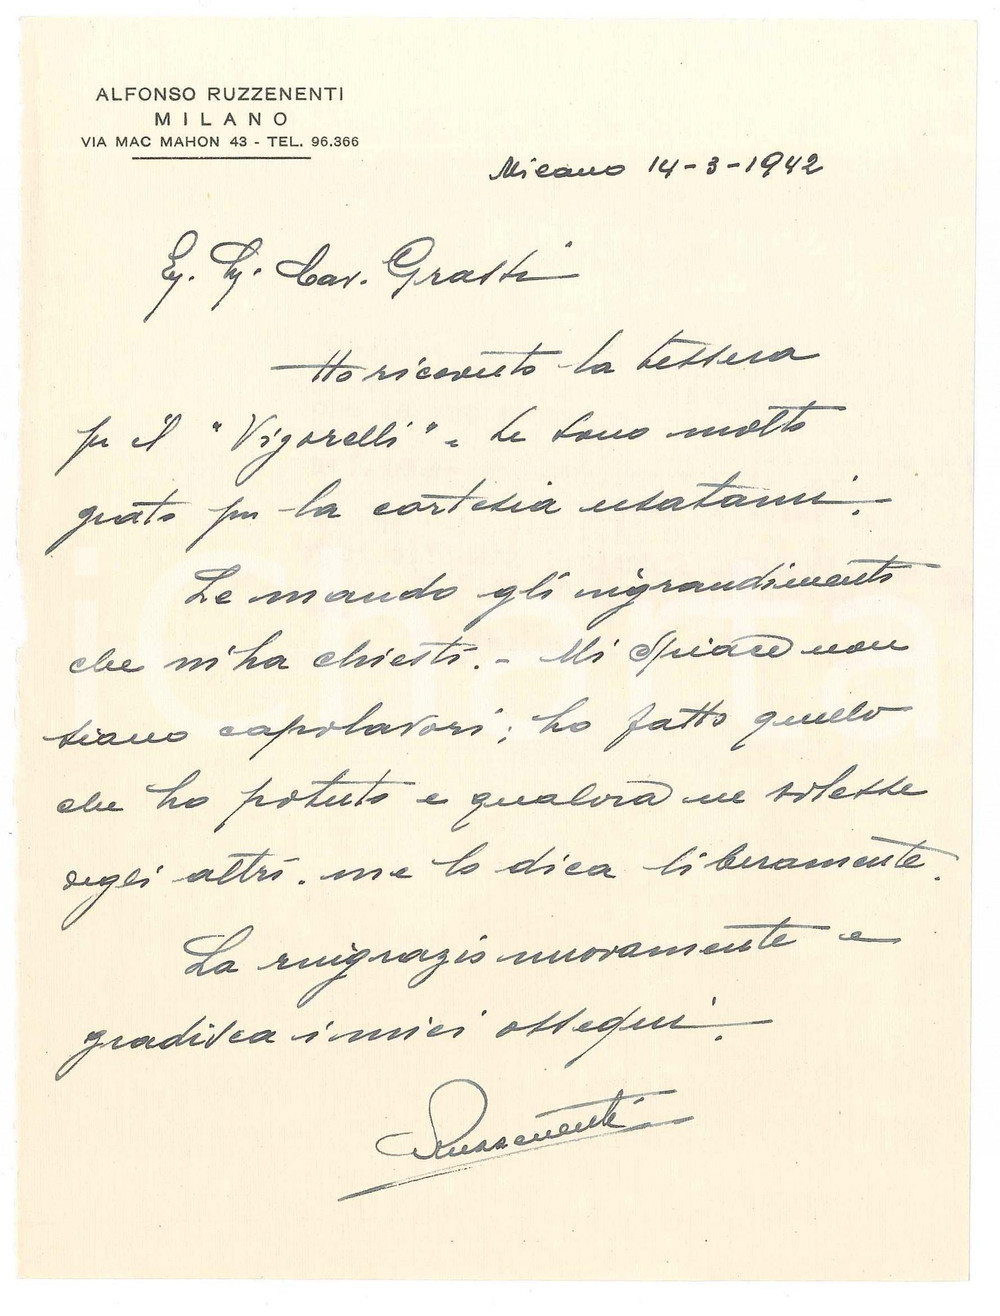 ALFONSO RUZZENENTI
MILANO
VIA MAC MAHON 43 - TEL. 96.366
Milano 14-3-1942
Eg. Sig. Cav. Grassi
Ho ricevuto la tessera
per il "Vigorelli" e Le sono molto
grato per la cortesia usatami.
Le mando gli ingrandimenti
che mi ha chiesti. - Mi spiace non
siano capolavori; ho fatto quello
che ho potuto e qualora ne volesse
degli altri. me lo dica liberamente.
La ringrazio nuovamente e
gradisca i miei ossequi.
Ruzzenenti
iCharta